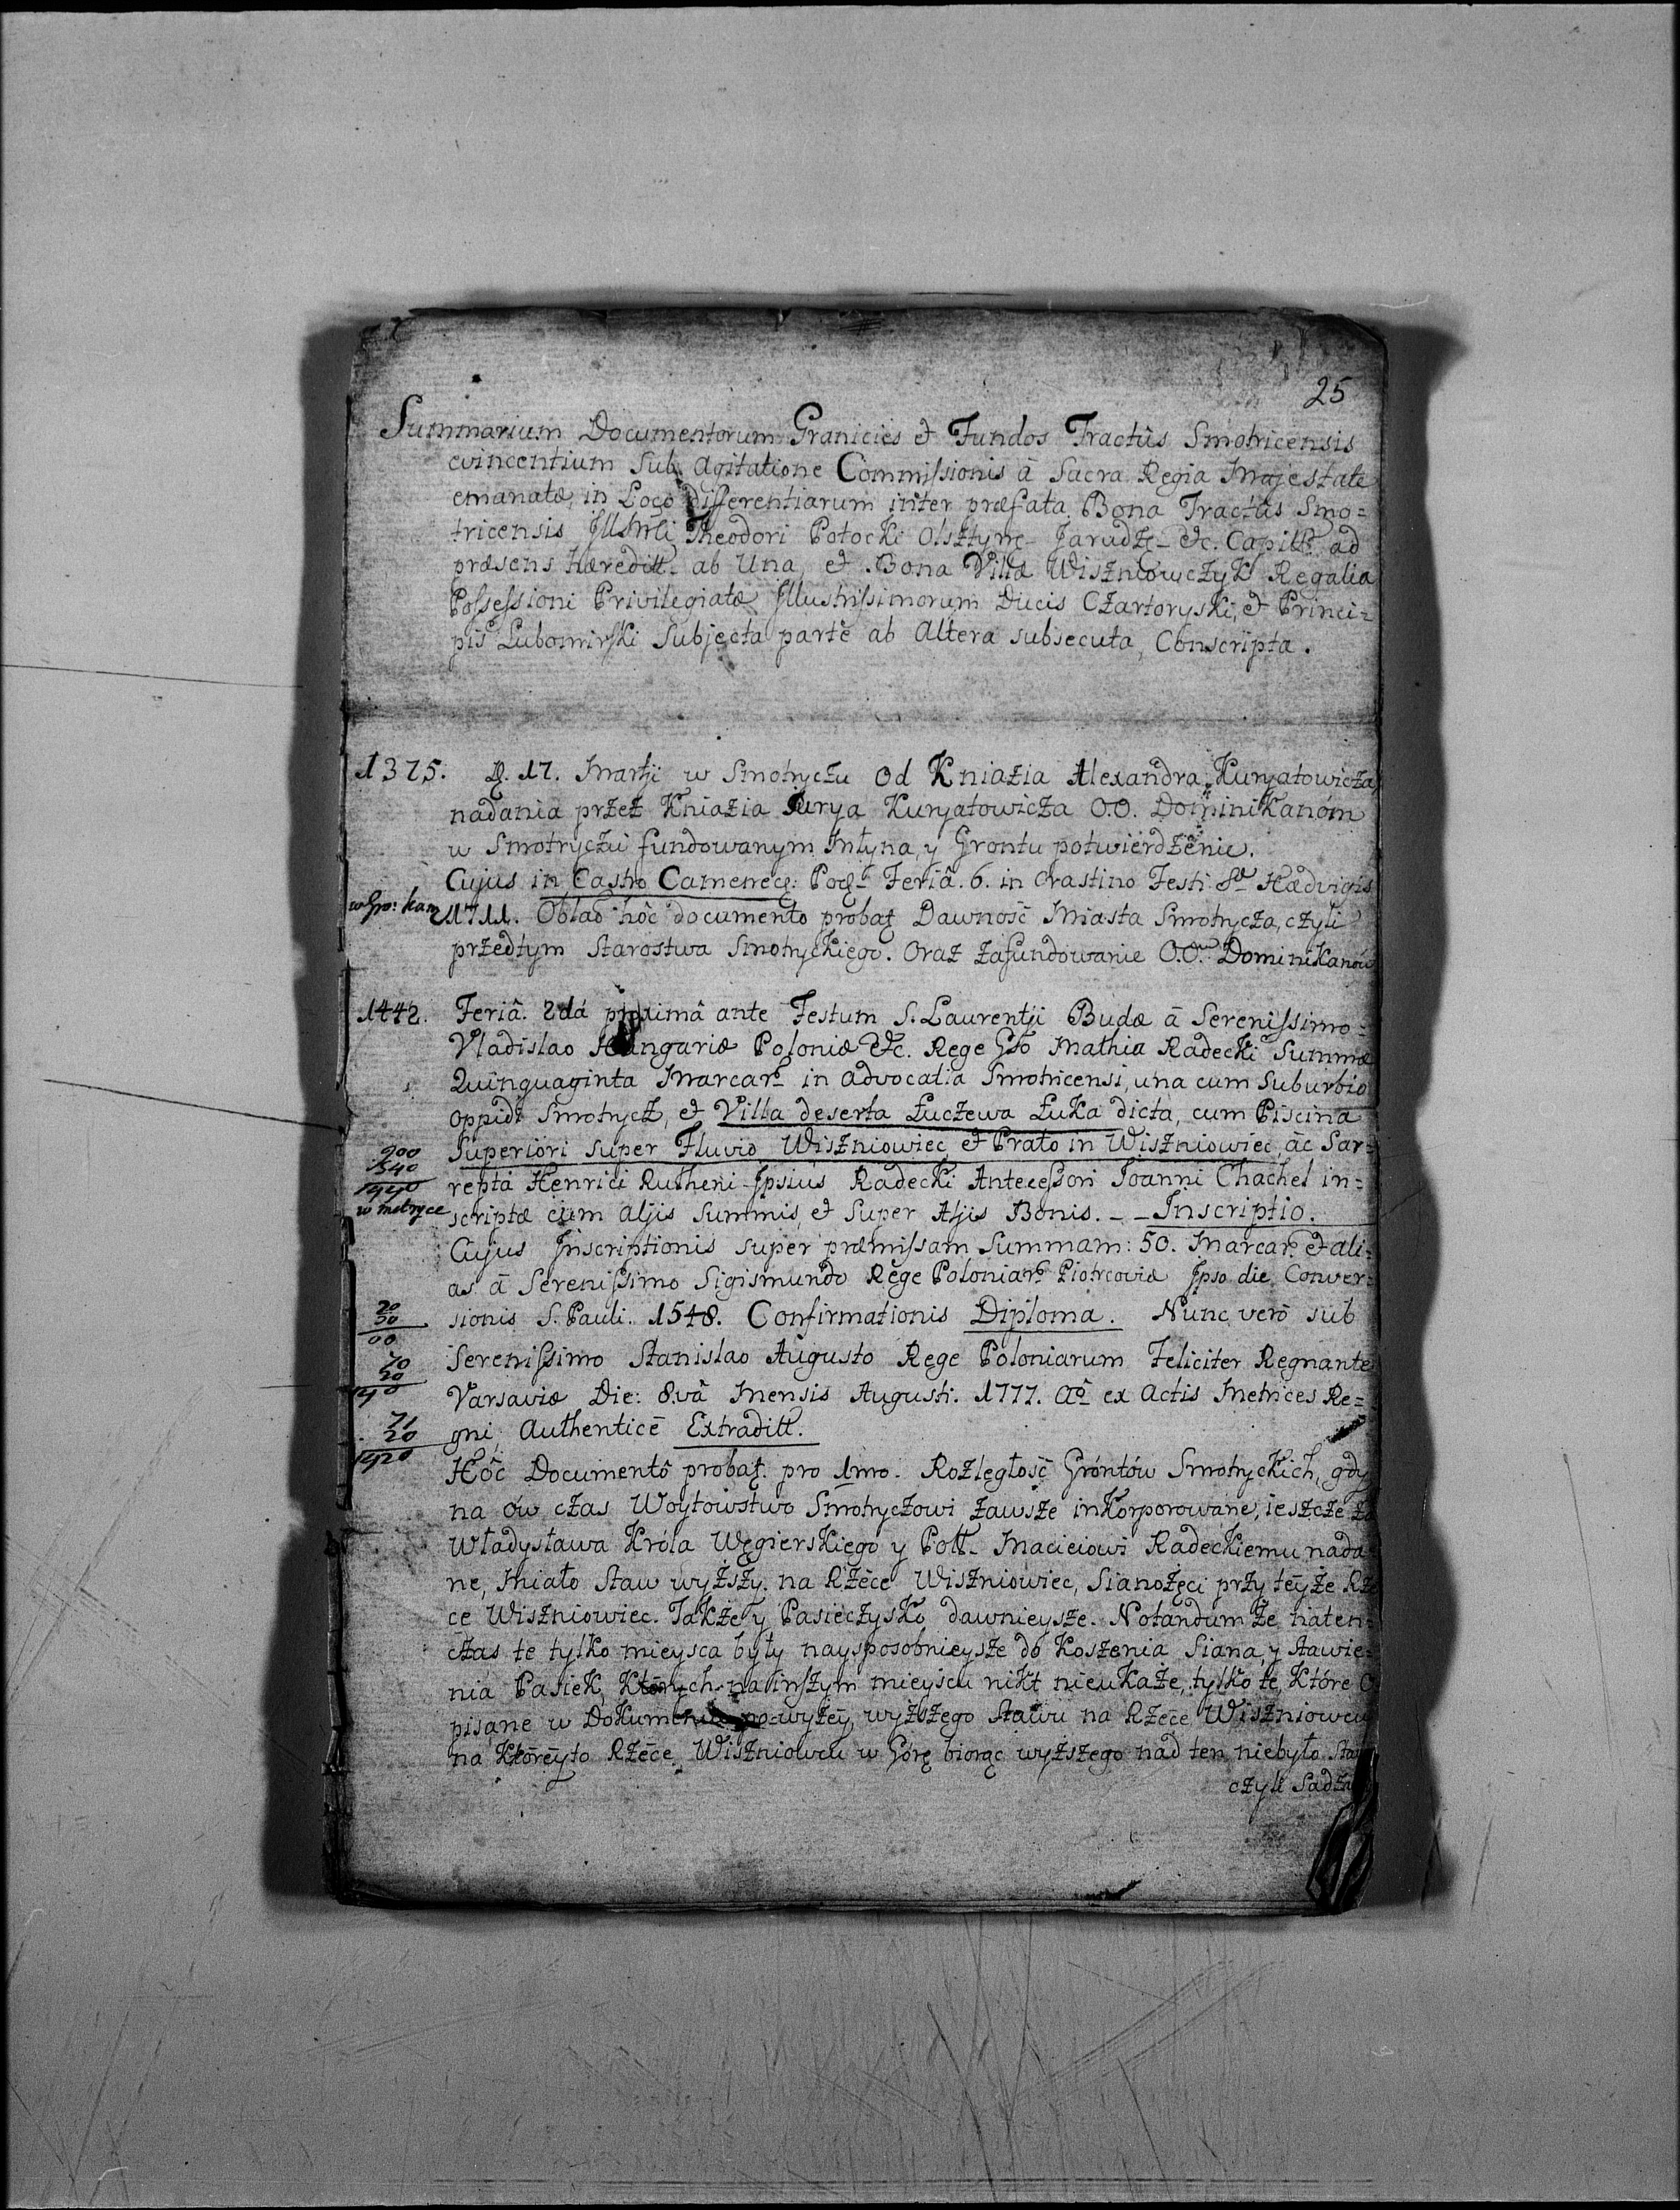 25
Summarium Documentorum Granicies et Fundos Tractûs Smotricensis
evincentium Sub Agitatione Commissionis â Sacra Regia Majestate
emanatæ, in Loco differentiarum inter præfata Bona Tractûs Smo=
tricensis Illstrli Theodori Potocki Olsztynę- Jarudzę- &c. Capitt. ad
præsens hæreditt. ab Una, et Bona Villæ Wiszniowczyk Regalia
Possessioni Privilegiatæ Illustrissimorum Ducis Czartoryski, et Princi=
pis Lubomirski Subjecta parte ab Altera subsecuta, Conscripta.
1375. D. 17. Martji w Smotryczu Od Kniazia Alexandra Kuryatowicza
nadania przez Kniazia Jurya Kuryatowicza O.O. Dominikanóm
w Smotryczu fundowanym Młyna, y Grontu potwierdzenie.
Cujus in Castro Camenecę: Podę- Feriâ. 6. in Crastino Festi Sæ Hædvigis
w Gro: kam 1711. Oblao hôc documento probaţ Dawność Miasta Smotrycza, czyli
przedtym Starostwa Smotryckiego. Oraz zafundowanie O.O. Dominikanów
1442. Feriâ. 2dá proximâ ante Festum S. Laurentji Budæ â Serenissimo
Vladislao Hungariæ Poloniæ &c. Rege Gso Mathia Radecki Summæ
Quinquaginta Marcar in Advocatia Smotricensi, una cum Suburbio
Oppidi Smotrycz, et Villa deserta Łuczewa Łuka dicta, cum Piscina
Superiori super Fluvio Wiszniowiec et Prato in Wiszniowiec, ac Sar=
900
540
1440
repta Henrici Rutheni Ipsius Radecki Antecessori Joanni Chachel in=
w metryce
scriptæ cum Aljis Summis, et Super Aljis Bonis. - - Inscriptio.
Cujus Inscriptionis super præmissam Summam: 50. Marcar. et ali=
as â Serenissimo Sigismundo Rege Poloniar Piotrcoviæ Ipso die Conver=
sionis S. Pauli. 1548. Confirmationis Diploma. Nunc verô sub
Serenissimo Stanislao Augusto Rege Poloniarum Feliciter Regnante
Varsaviæ Die: 8vâ Mensis Augusti. 1777. Aô ex Actis Metrices Re=
gni Authenticê Extraditt.
Hôc Documentô probaţ. pro 1mo. Rozległość Gróntów Smotryckich, gdy
na ów czas Woytowstwo Smotryczowi zawsze inkorporowane, ieszcze za
Władysława Króla Węgierskiego y Polł- Maciciowi Radeckiemu nada=
ne, Miało Staw wyższy na Rzéce Wiszniowiec, Sianożęci przy teyże Rzé
ce Wiszniowiec. Także y Pasieczysko dawnieysze. Notandum że naten=
czas te tylko mieysca były naysposobnieysze do Koszenia Siana, y stawie=
nia Pasiek, Których na inszym mieyscu nikt nieukaże, tylko te, Które O
pisane w Dokumencie po-wyżéy, wyższego Stawu na Rzéce Wiszniowcu
na Któréyto Rzéce Wiszniowcu w Górę biorąc wyższego nad ten niebyło Sta
czyli Sadza